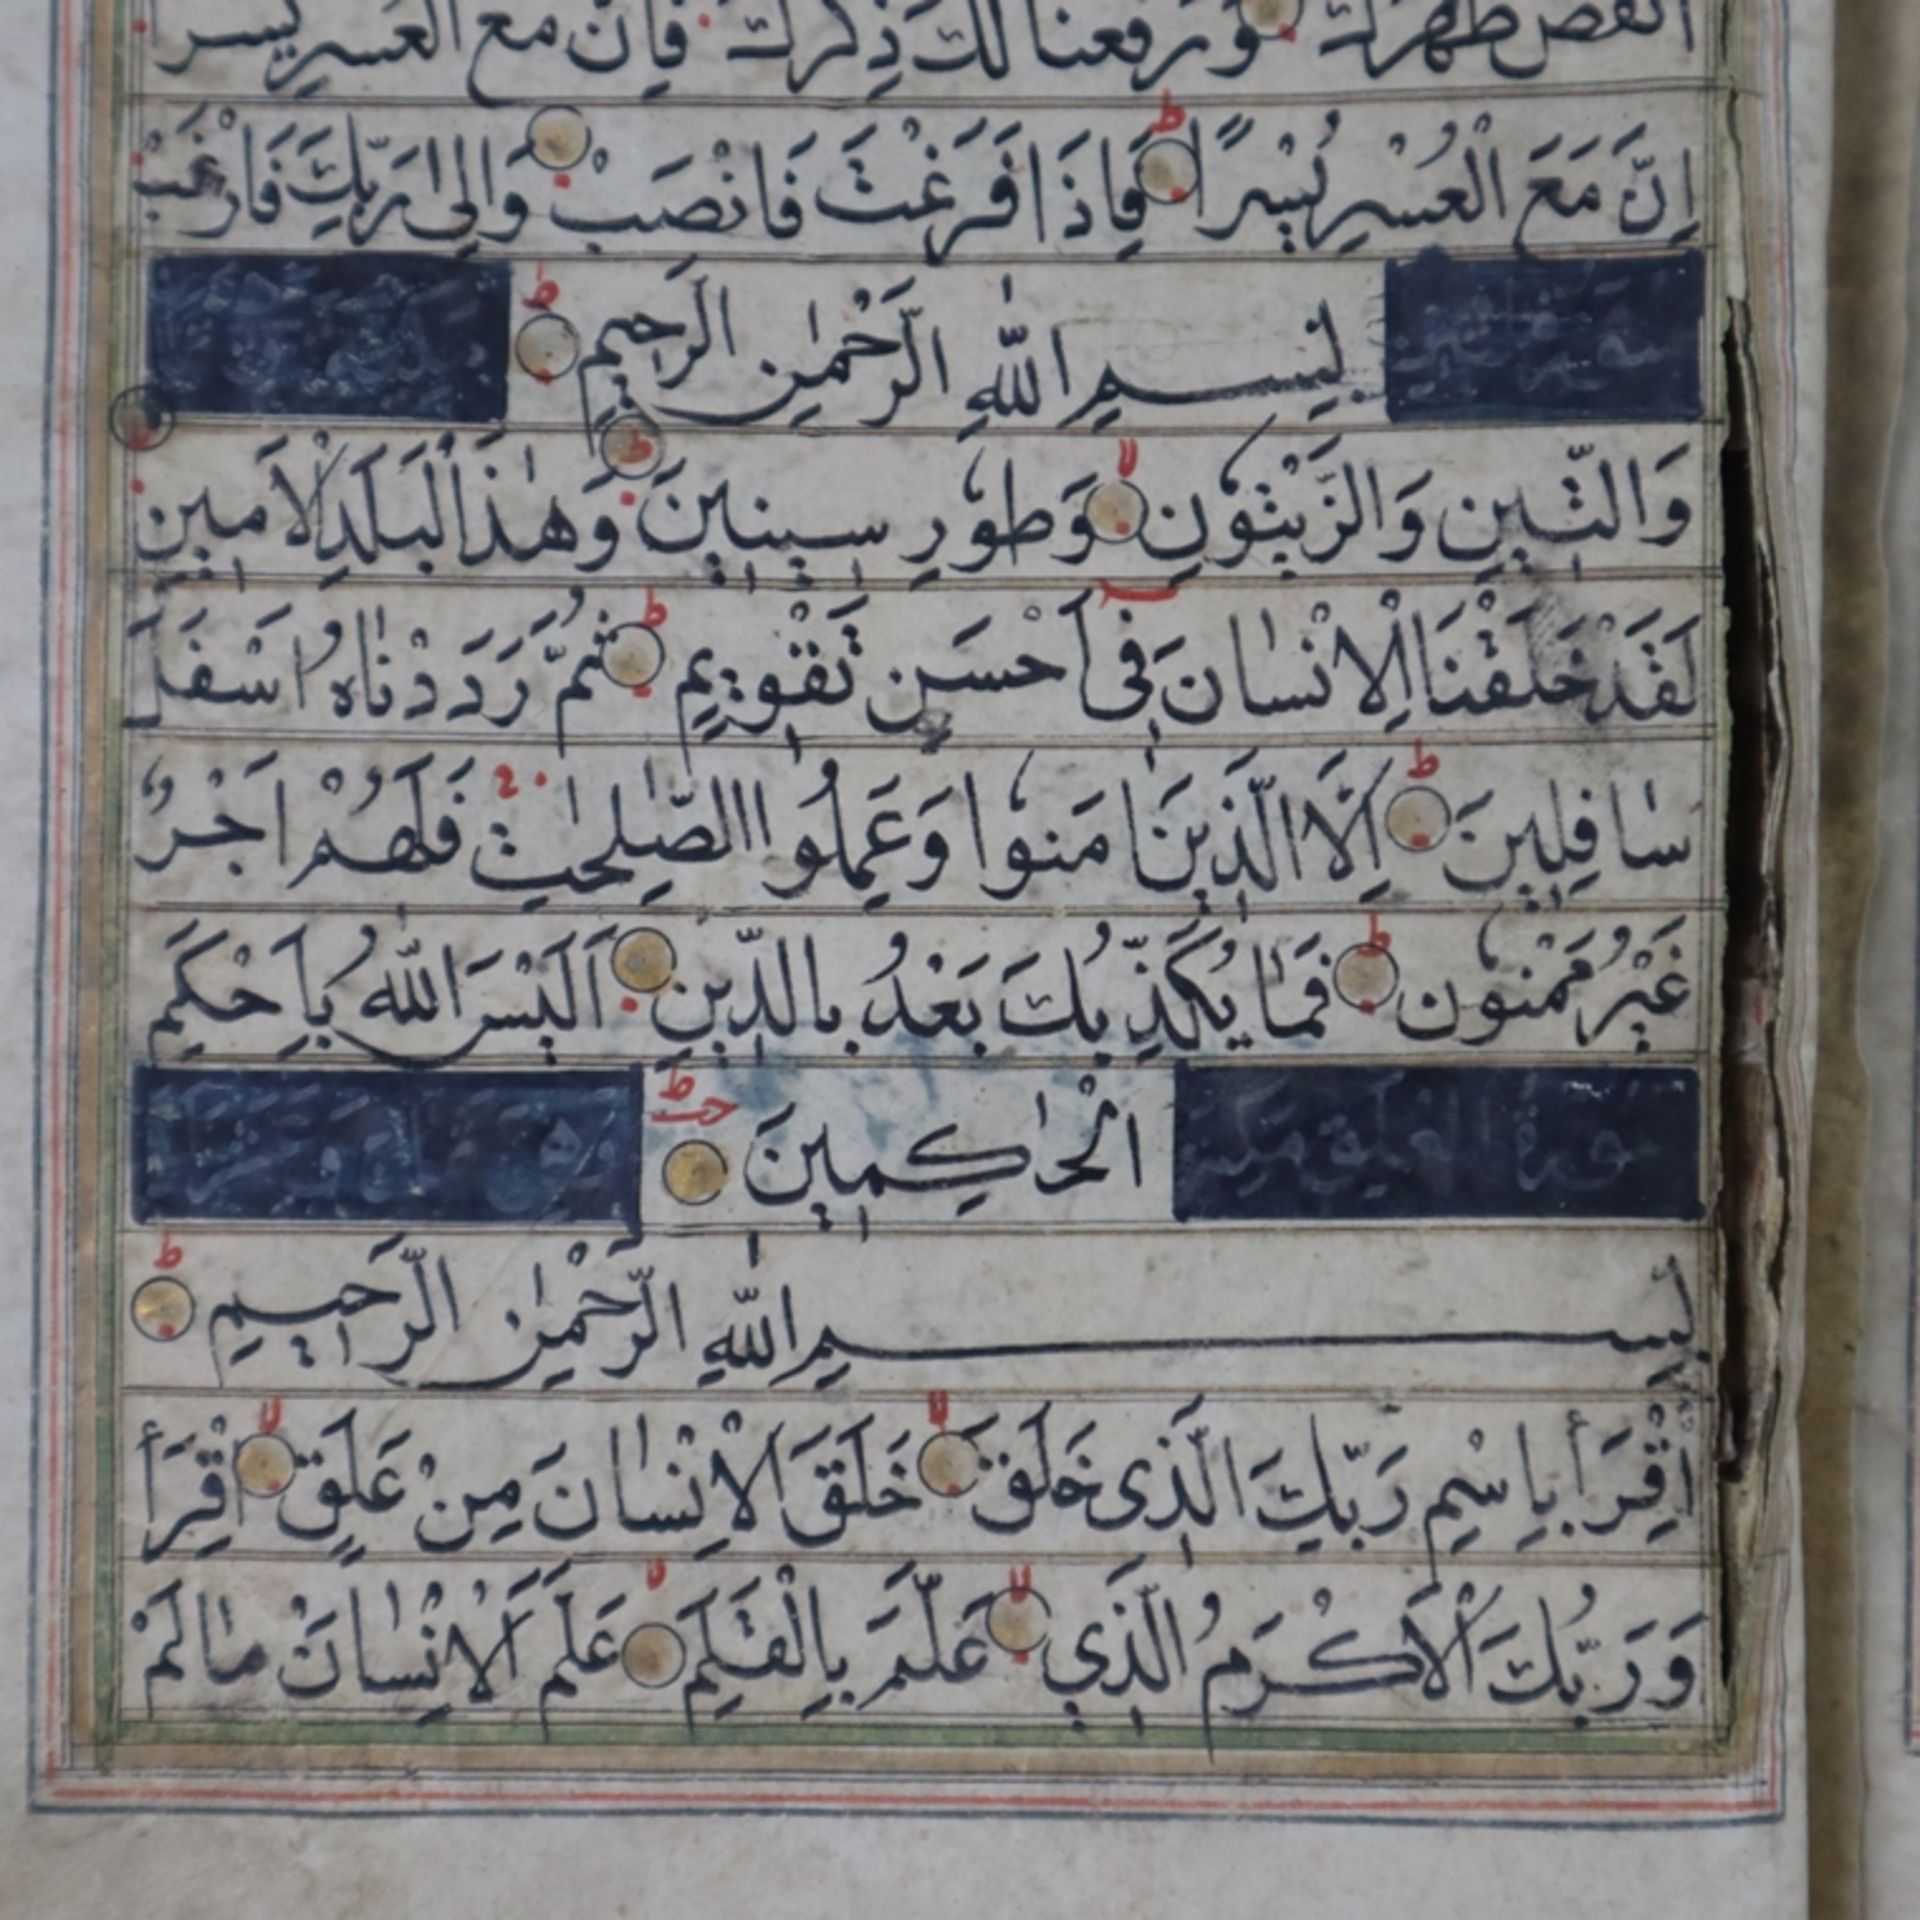 انقض ظهرك ورفعنا لك ذكرك فان مع العسر يسرا
اِنَّ مَعَ الْعُسْرِ يُسْرًا ط فَاِذَا فَرَغْتَ فَانْصَبْ وَاِلىٰ رَبِّكَ فَارْغَبْ
بِسْمِ اللّٰهِ الرَّحْمٰنِ الرَّحِيمِ ط
وَالتِّينِ وَالزَّيْتُونِ لا وَطُورِ سِينِينَ ط وَهٰذَا الْبَلَدِ الْاَمِينِ
لَقَدْ خَلَقْنَا الْاِنْسٰانَ فِى اَحْسَنِ تَقْوِيمٍ ط ثُمَّ رَدَدْنٰاهُ اَسْفَلَ
سٰافِلِينَ ط اِلَّا الَّذِينَ اٰمَنُوا وَعَمِلُوا الصّٰلِحٰتِ فَلَهُمْ اَجْرٌ
غَيْرُ مَمْنُون ط فَمٰا يُكَذِّبُكَ بَعْدُ بِالدِّينِ اَلَيْسَ اللّٰهُ بِاَحْكَمِ
الْحٰاكِمِينَ ط
سورة العلق مكية
بِسْمِ اللّٰهِ الرَّحْمٰنِ الرَّحِيمِ ط
اِقْرَأْ بِاسْمِ رَبِّكَ الَّذِى خَلَقَ لا خَلَقَ الْاِنْسٰانَ مِنْ عَلَقٍ لا اِقْرَأْ
وَرَبُّكَ الْاَكْرَمُ الَّذِي لا عَلَّمَ بِالْقَلَمِ عَلَّمَ الْاِنْسٰانَ مٰالَمْ